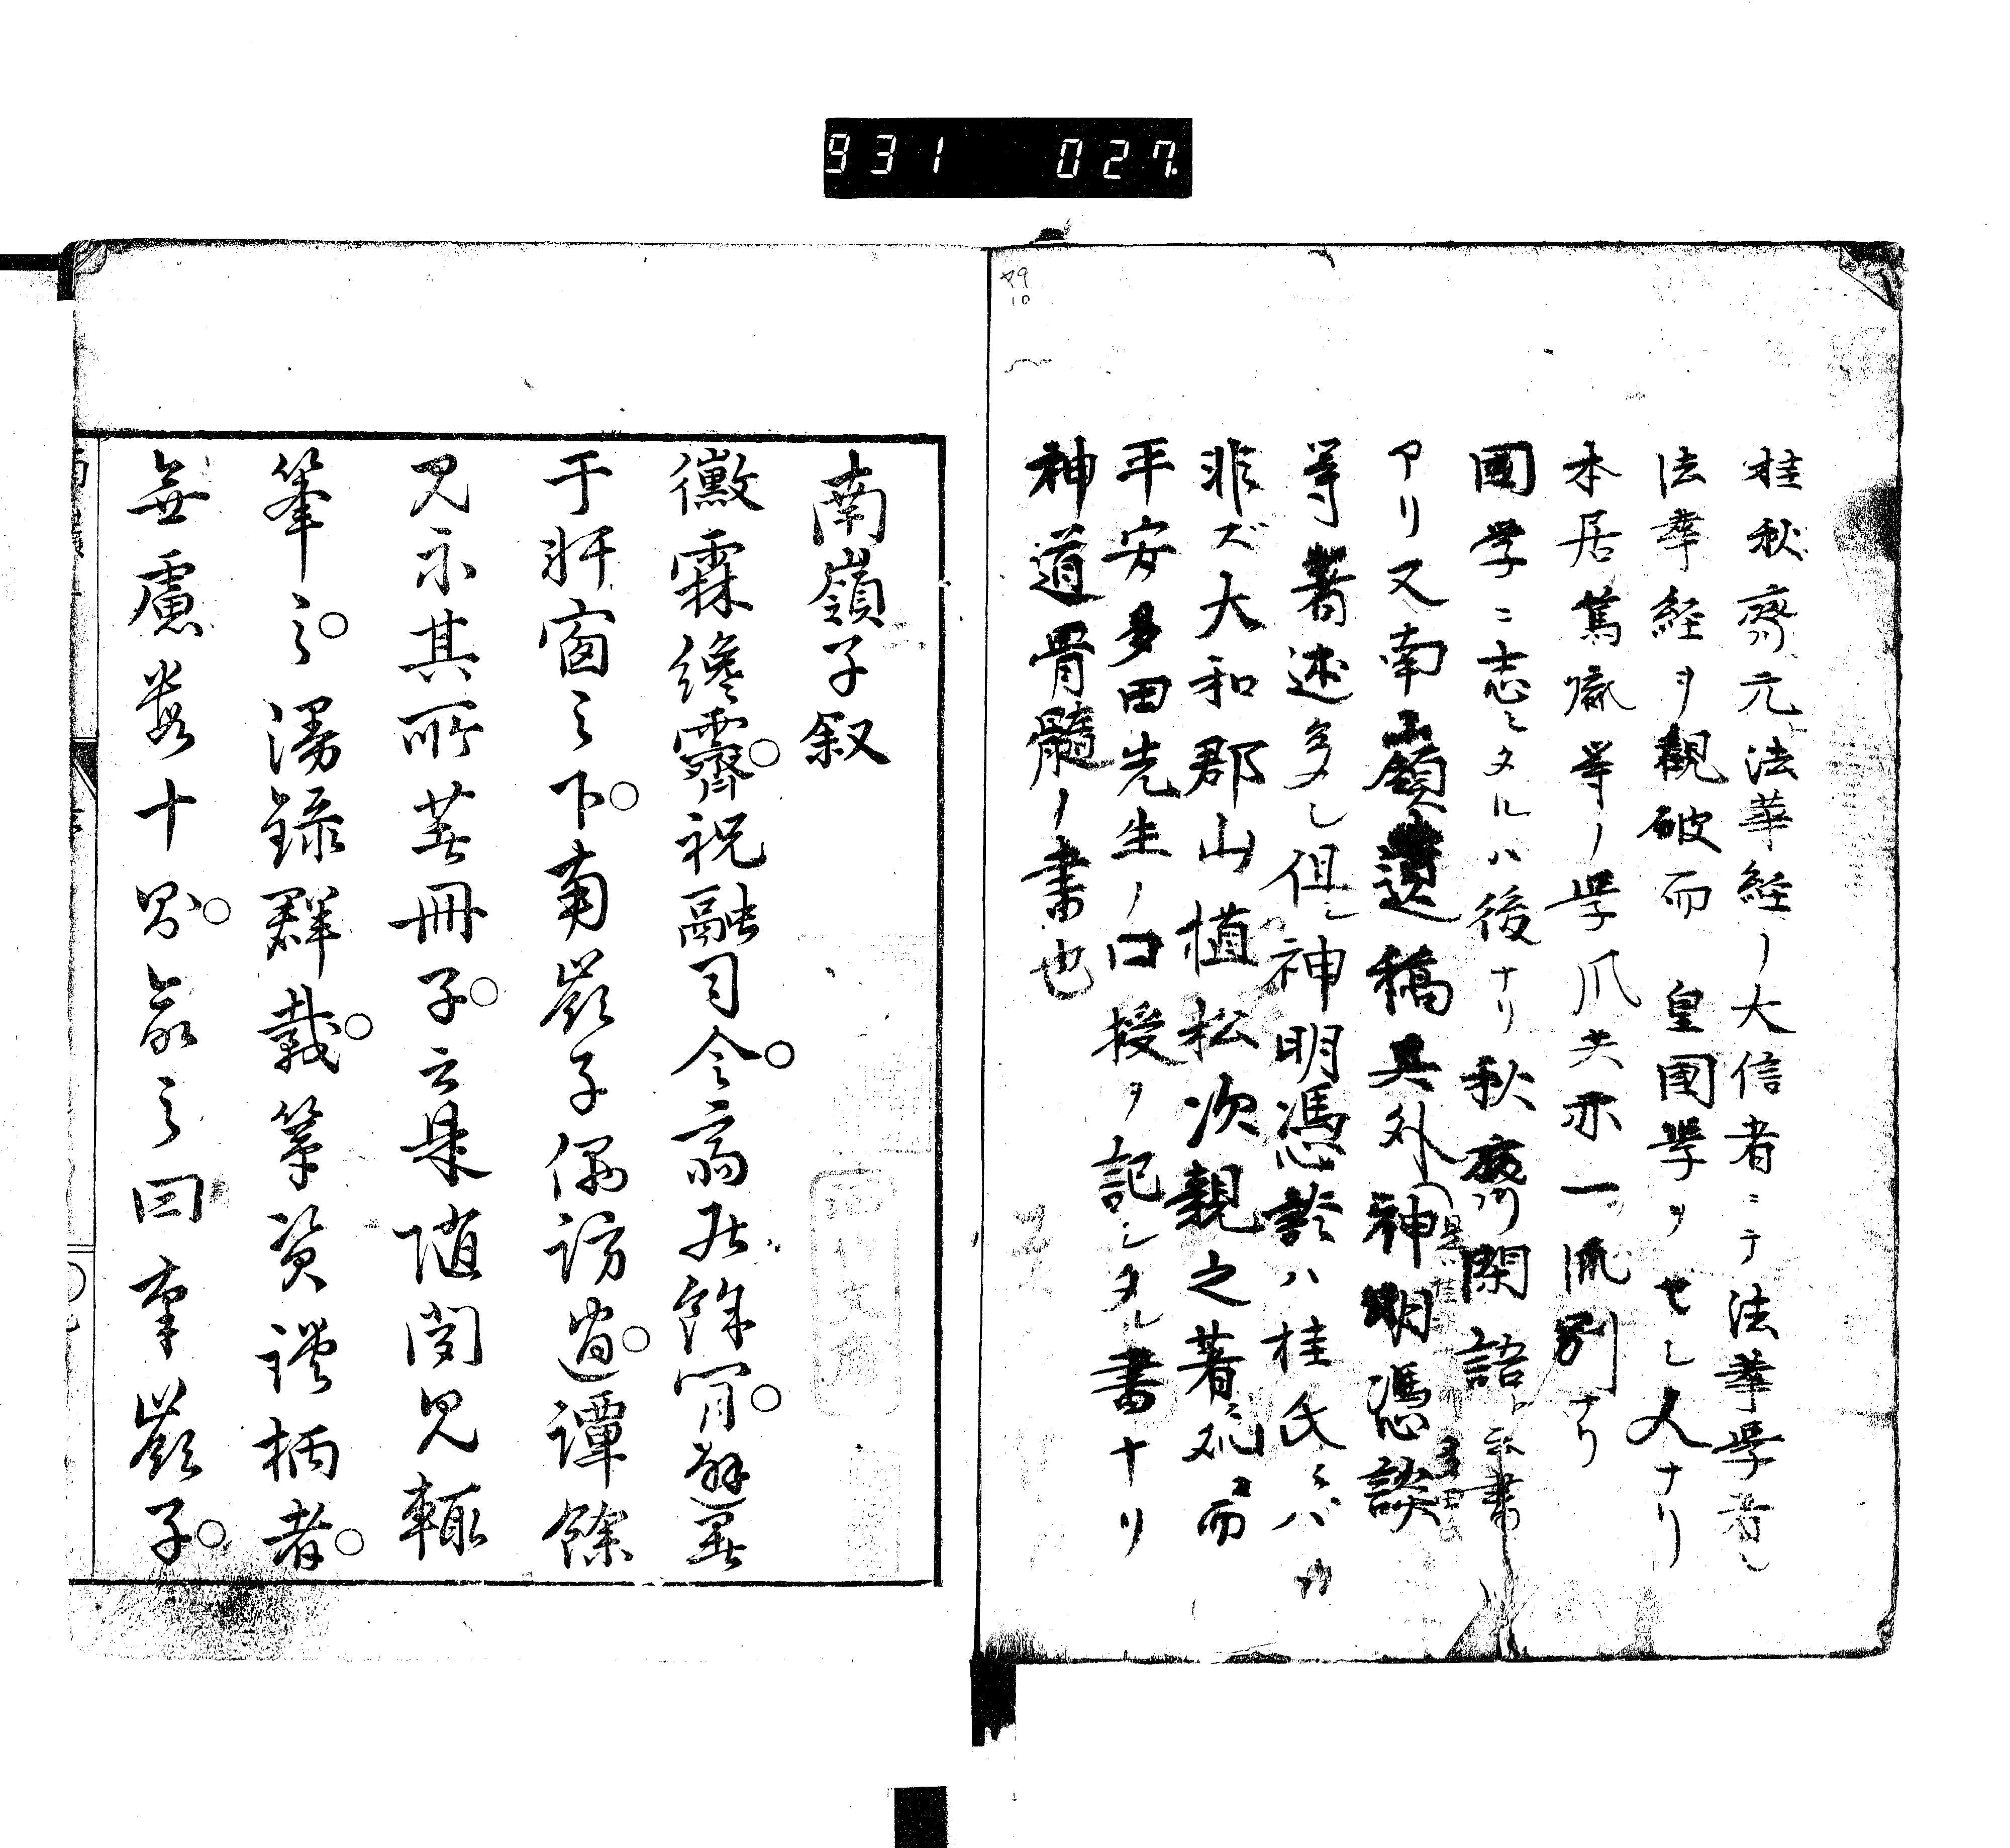 931 027.
桂秋齋元法華経ノ大信者ニテ法華学者シ
法華経ヲ観破而 皇國學ヲセシ人ナリ
本居篤胤等ノ学爪夫亦一流別ナリ
國学ニ志シタルハ後ナリ秋齋閑語ト云書
アリ又南嶺遺稿其外神明憑談
等著述多シ但シ神明憑談ハ桂氏ニハ
非ズ大和郡山植松次親之著述而
平安多田先生ノ口授ヲ記シタル書ナリ
神道骨髓ノ書也
南嶺子叙
黴霖纔霽祝融司令斎居餘閒避暑
于軒窗之下南嶺子偶訪迨譚餘
見示其所著冊子云是随聞見輒
筆之漫録群載筆資談柄者
無慮幾十則命之曰南嶺子